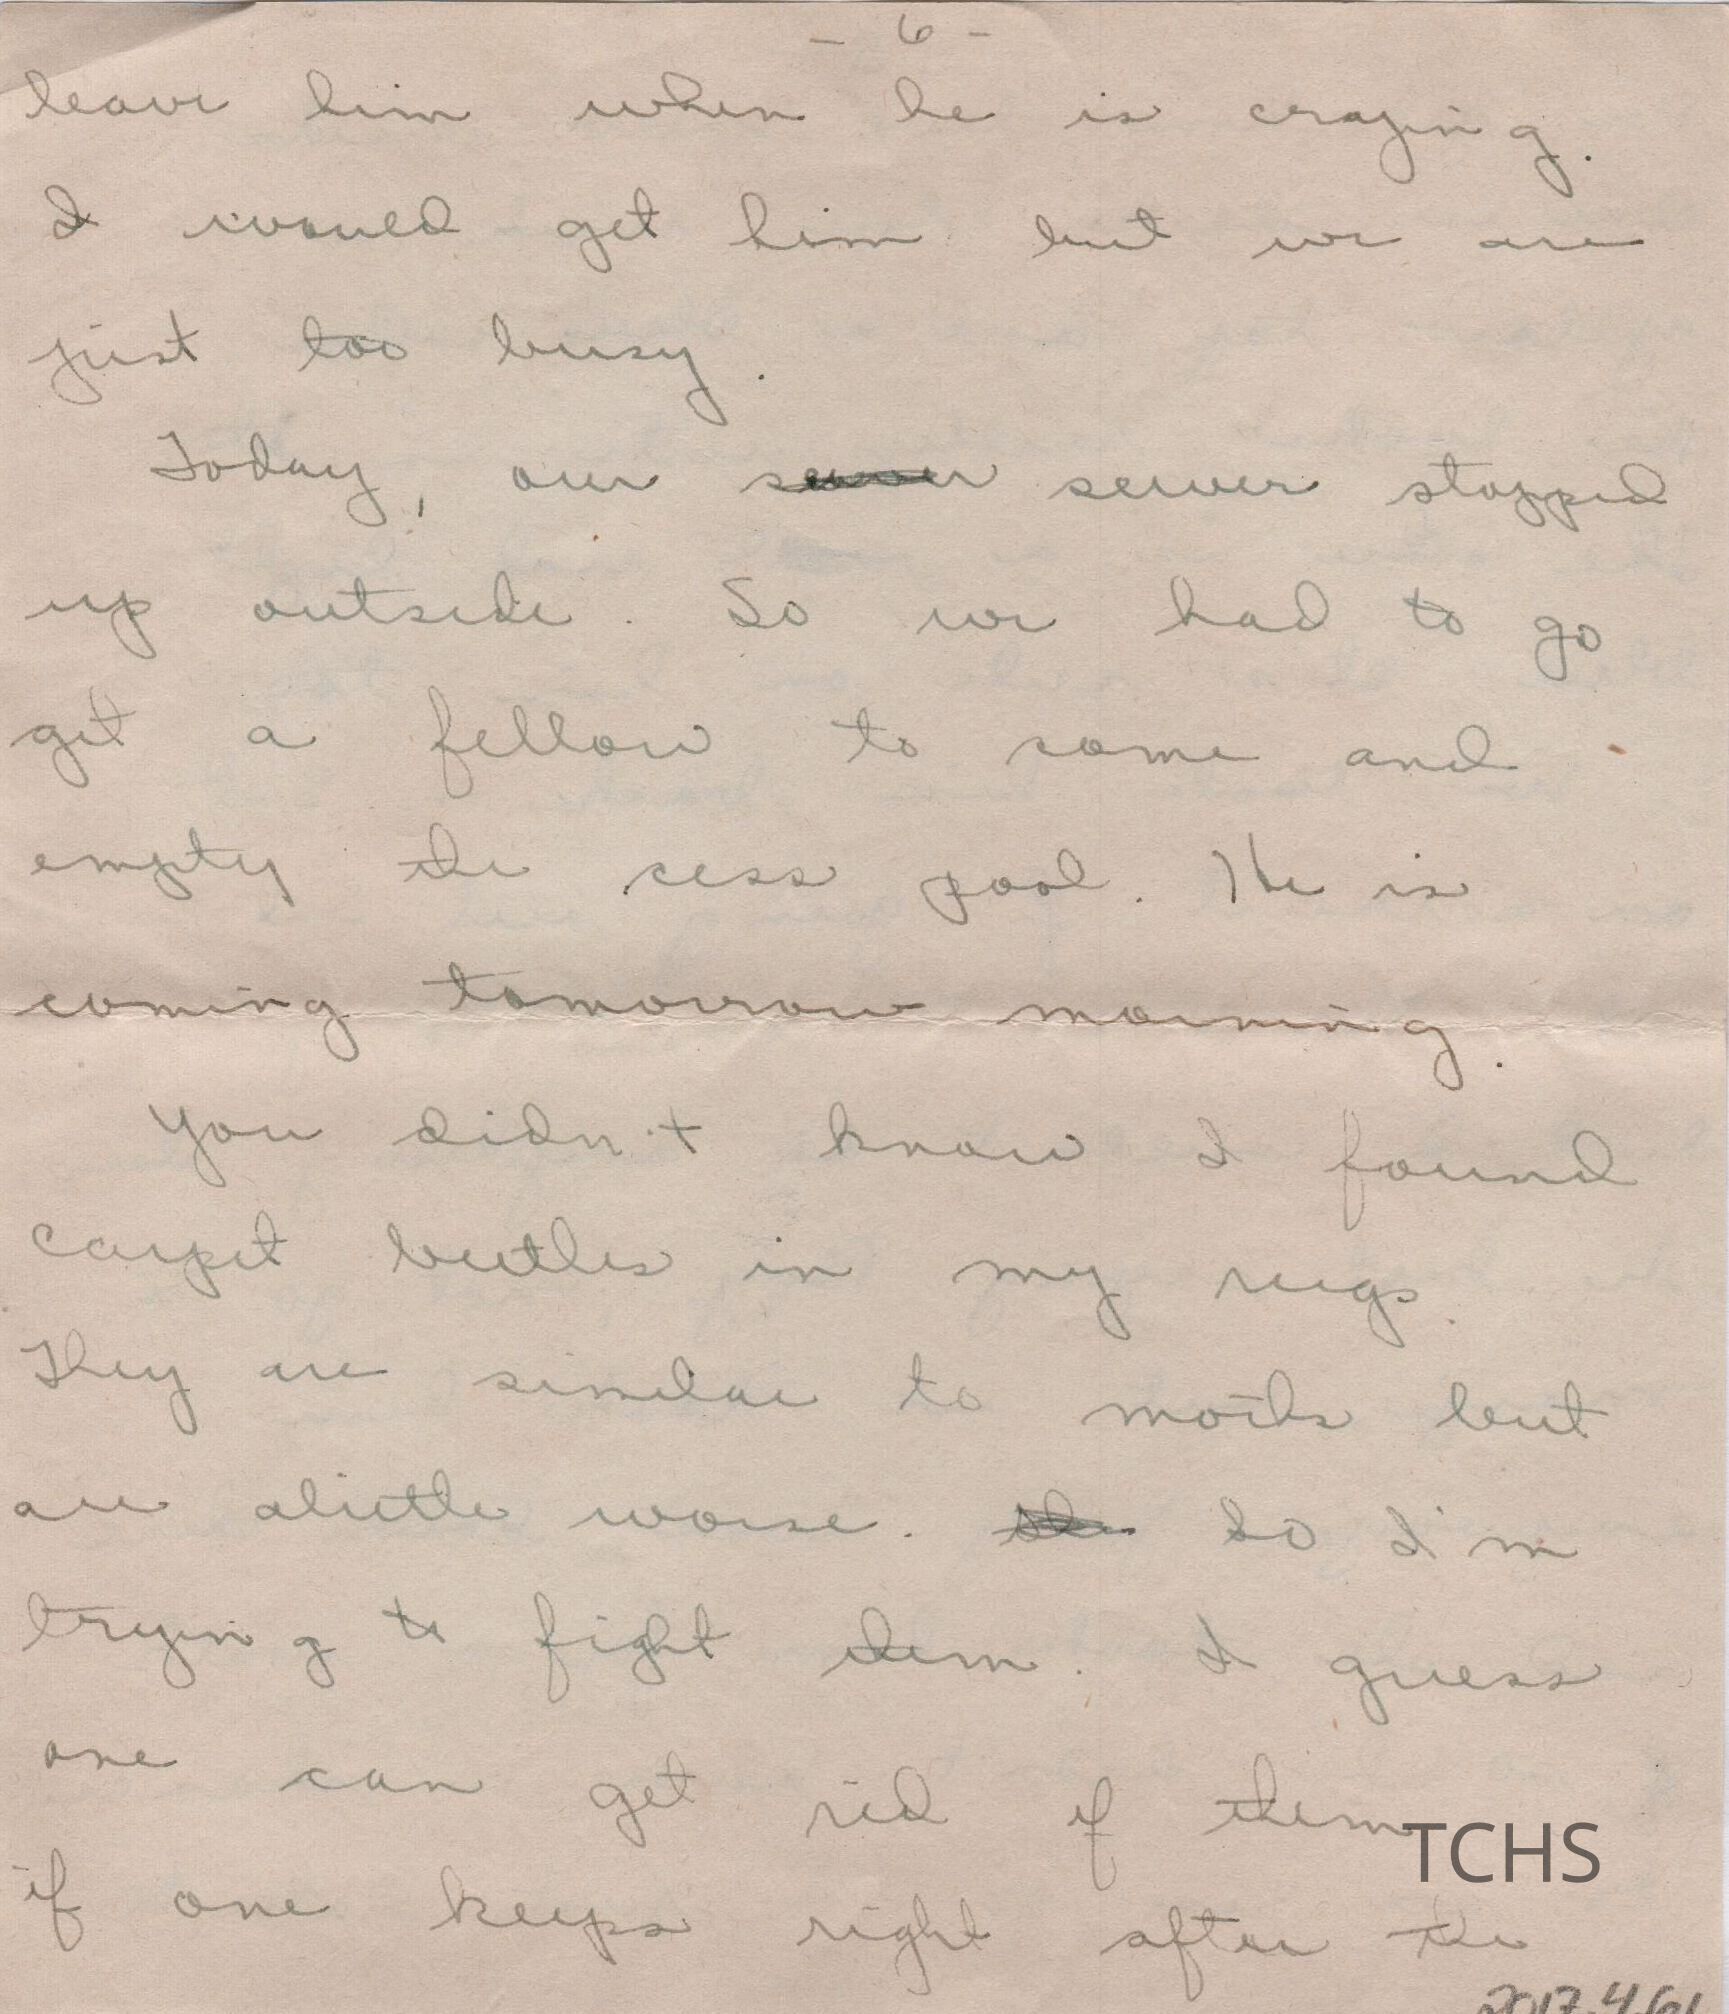 - 6 -
leave him when he is crying.
I would get him but we are
just too busy.
Today, our sewer sewer stopped
up outside. So we had to go
get a fellow to come and
empty the cess pool. He is
coming tomorrow morning.
You didn't know I found
carpet beetles in my rugs.
They are similar to moths but
are alittle worse. the So I'm
trying to fight them. I guess
one can get rid if them
TCHS
if one keeps right after the
2017.4.61